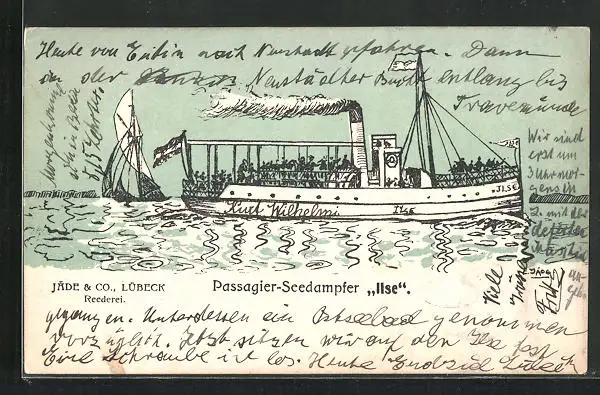 Heute von Eutin nach Neustadt gefahren. Dann
in der Neustädter Bucht entlang bis
Travemünde
Wir sind
erst um
3 Uhr mor-
gens in
mit der
ILSE
ILSE
Kurt Wilhelmi
JÄDE & CO., LÜBECK
Reederei.
Passagier-Seedampfer „Ilse“.
Viele
Grüsse
Fritz
gegangen. Unterdessen ein Ostseebad genommen
vorzüglich. Jetzt sitzen wir auf der Ilse fest
Eine Schraube ist los. Heute Endziel Lübeck